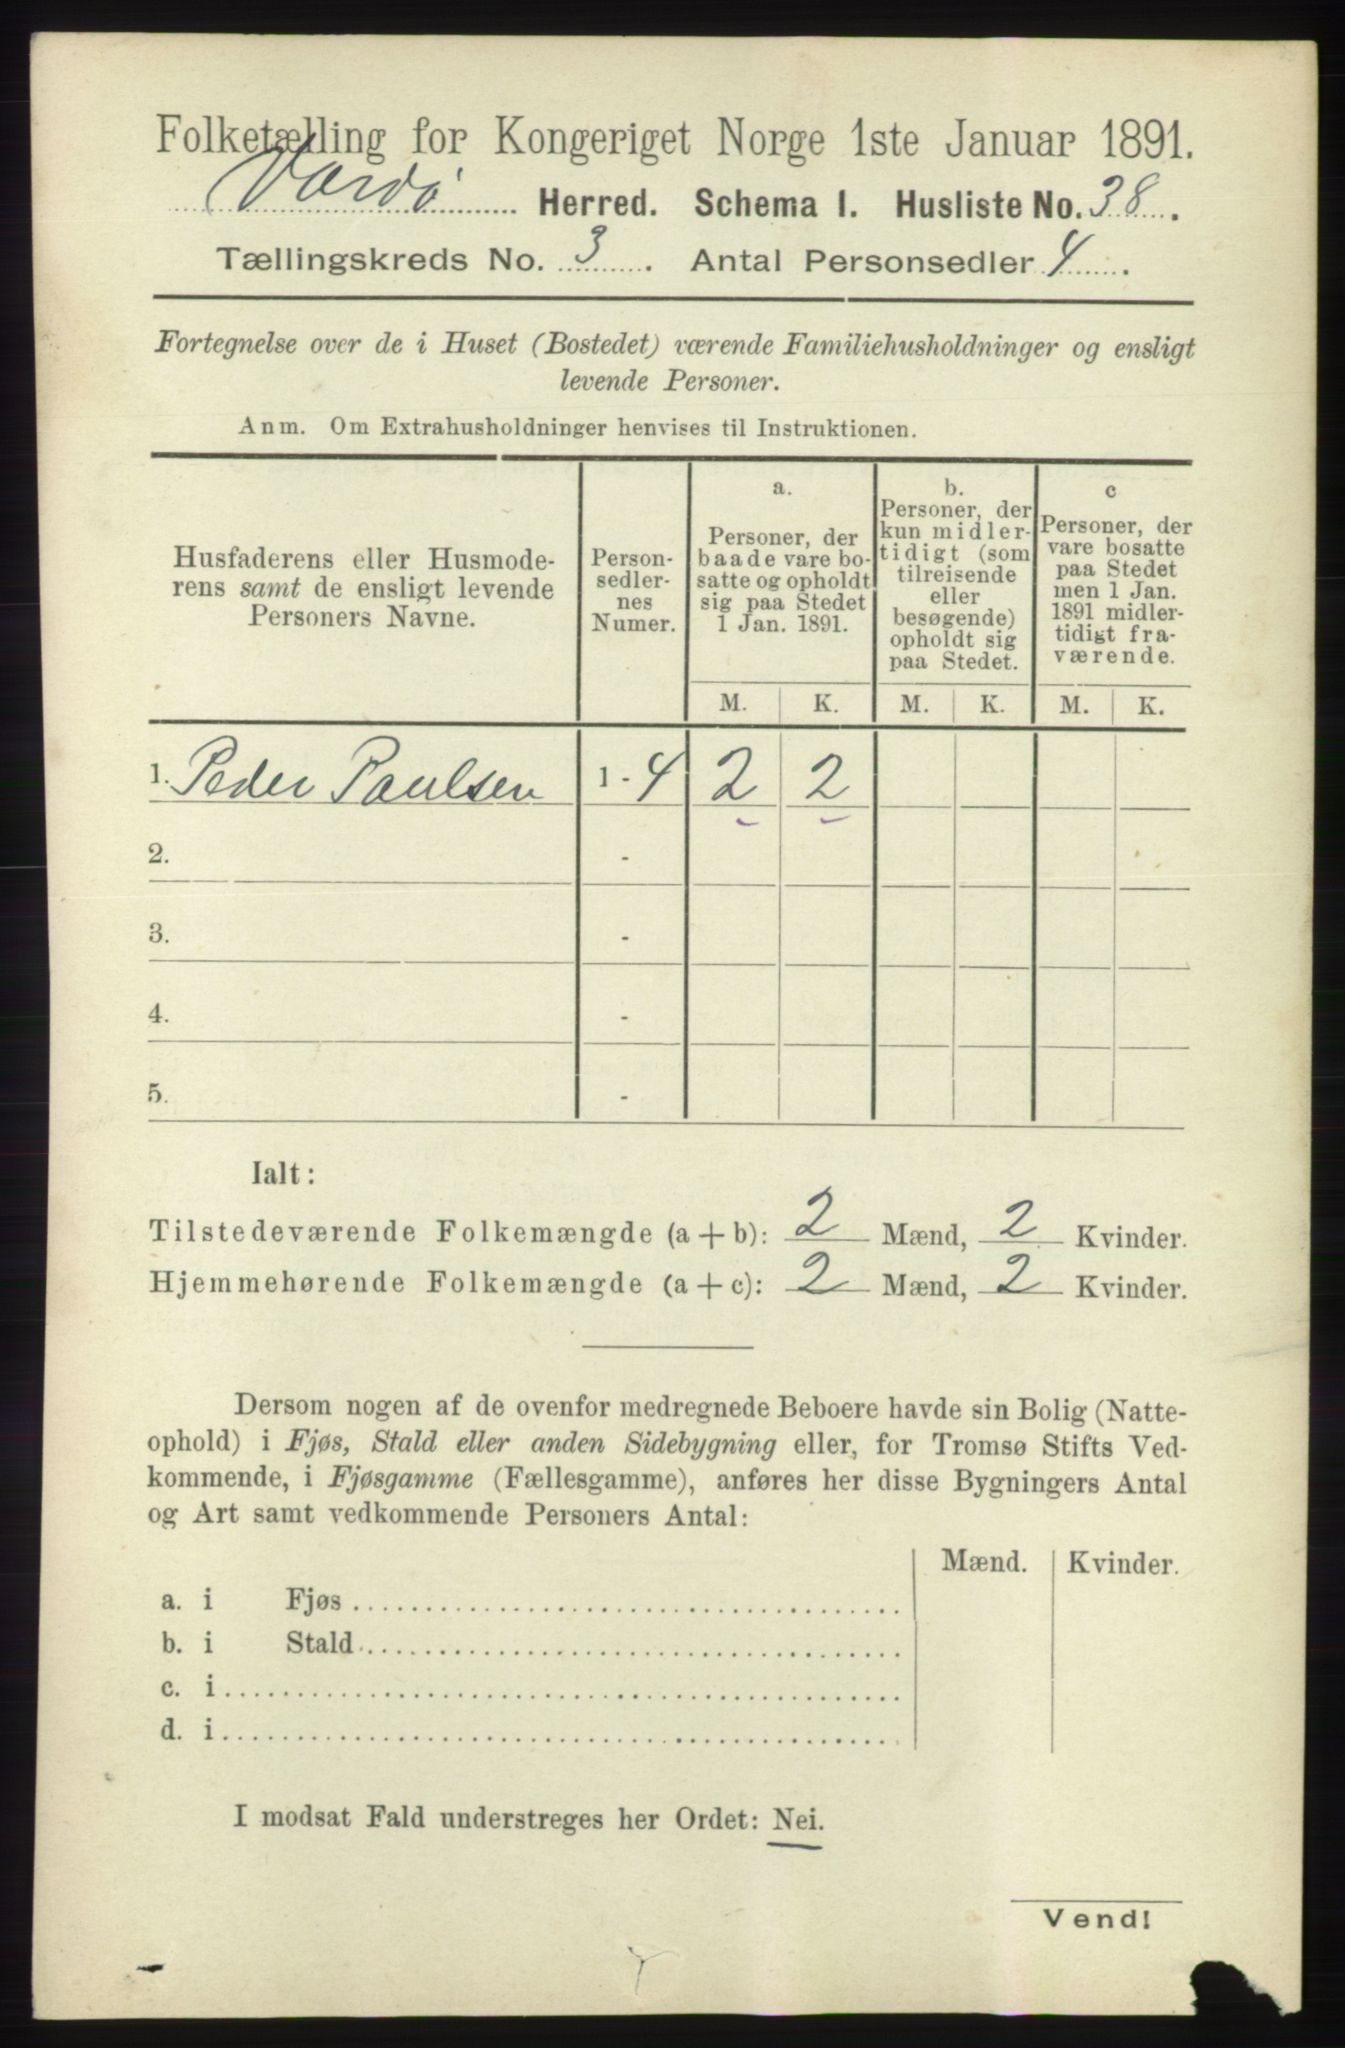 Folketælling for Kongeriget Norge 1ste Januar 1891.
Vardø Herred. Schema I. Husliste No. 38.
Tællingskreds No. 3. Antal Personsedler 4.
Fortegnelse over de i Huset (Bostedet) værende Familiehusholdninger og ensligt
levende Personer.
Anm. Om Extrahusholdninger henvises til Instruktionen.
Husfaderens eller Husmode-
rens samt de ensligt levende
Personers Navne.
Person-
sedler-
nes
Numer.
a.
Personer, der
baade vare bo-
satte og opholdt
sig paa Stedet
1 Jan. 1891.
b.
Personer, der
kun midler-
tidigt (som
tilreisende
eller
besøgende)
opholdt sig
paa Stedet.
c
Personer, der
vare bosatte
paa Stedet
men 1 Jan.
1891 midler-
tidigt fra-
værende.
M. K. M. K. M. K.
1. Peder Paulsen 1 - 4 2 2
2. -
3. -
4. -
5. -
Ialt:
Tilstedeværende Folkemængde (a + b): 2 Mænd, 2 Kvinder.
Hjemmehørende Folkemængde (a + c): 2 Mænd, 2 Kvinder.
Dersom nogen af de ovenfor medregnede Beboere havde sin Bolig (Natte-
ophold) i Fjøs, Stald eller anden Sidebygning eller, for Tromsø Stifts Ved-
kommende, i Fjøsgamme (Fællesgamme), anføres her disse Bygningers Antal
og Art samt vedkommende Personers Antal:
Mænd. Kvinder.
a. i Fjøs
b. i Stald
c. i
d. i
I modsat Fald understreges her Ordet: Nei.
Vend!